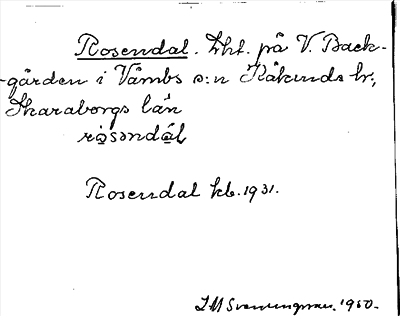 Rosendal. Lht. på V. Back-
gården i Våmbs s:n Kåkinds hd,
Skaraborgs län
rosəndal
Rosendal kb. 1931.
1950.